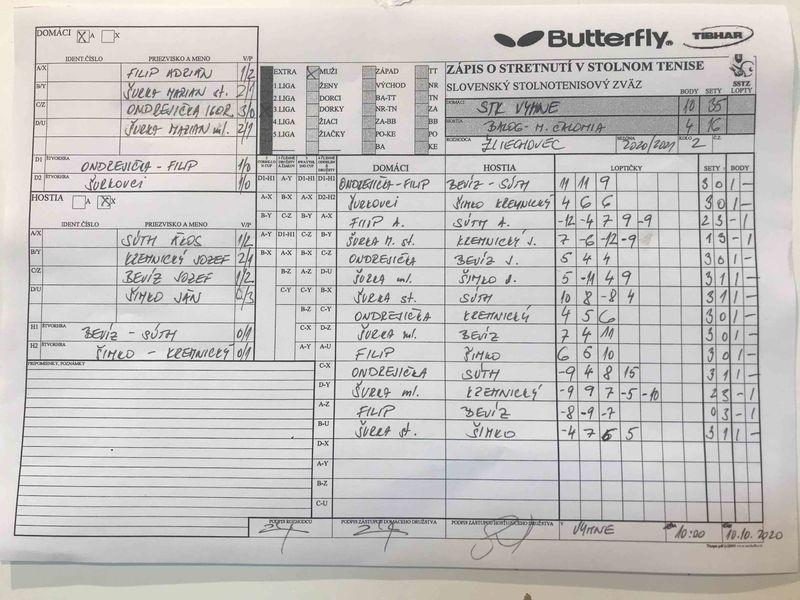 DOMÁCI X A X
Butterfly® TIBHAR
IDENT.ČÍSLO PRIEZVISKO A MENO V/P
A/X FILIP ADRIÁN 1/2
B/Y ŠURKA MARIAN st. 2/1
C/Z ONDREJIČKA IGOR 3/0
D/U ŠURKA MARIAN ml. 2/1
EXTRA X MUŽI ZÁPAD TT
1.LIGA ŽENY VÝCHOD NR
2.LIGA DORCI BA-TT TN
3.LIGA DORKY NR-TN ZA
4.LIGA ŽIACI ZA-BB BB
5.LIGA ŽIAČKY PO-KE PO
BA KE
ZÁPIS O STRETNUTÍ V STOLNOM TENISE
SLOVENSKÝ STOLNOTENISOVÝ ZVÄZ SSTZ
BODY SETY LOPTY
DOMÁCI STK VYHNE 10 35
HOSTIA BALOG - M. ČALOMIA 4 16
ROZHODCA ŽLIECHOVEC SEZÓNA 2020/2021 KOLO 2 Č.Z.
D1 ŠTVORHRA ONDREJIČKA - FILIP 1/0
D2 ŠTVORHRA ŠURKOVCI 1/0
HOSTIA A X X
IDENT.ČÍSLO PRIEZVISKO A MENO V/P
A/X SÚTH 1/2
B/Y KREMNICKÝ JOZEF 2/1
C/Z BEVÍZ JOZEF 1/2
D/U ŠIMKO JÁN 0/3
H1 ŠTVORHRA BEVÍZ - SÚTH 0/1
H2 ŠTVORHRA ŠIMKO - KREMNICKÝ 0/1
PRIPOMIENKY, POZNÁMKY
DOMÁCI HOSTIA LOPTIČKY SETY BODY
D1-H1 A-Y D1-H1 D1-H1 ONDREJIČKA - FILIP BEVÍZ - SÚTH 11 11 9 3 0 1 -
A-X B-X A-X D2-H2 ŠURKOVCI ŠIMKO KREMNICKÝ 4 6 6 3 0 1 -
B-Y C-Z B-Y A-X FILIP A. SÚTH A. -12 -4 7 9 -9 2 3 - 1
A-Y D1-H1 C-Z B-Y ŠURKA M. st. KREMNICKÝ J. 7 -6 -12 -9 1 3 - 1
B-X A-X B-X C-Z ONDREJIČKA BEVÍZ J. 5 4 4 3 0 1 -
B-Z A-Z D-U ŠURKA ml. ŠIMKO J. 5 -11 4 9 3 1 1 -
C-Y C-Y B-X ŠURKA st. SÚTH 10 8 -8 4 3 1 1 -
B-Z C-Y ONDREJIČKA KREMNICKÝ 4 5 6 3 0 1 -
C-X D-Z ŠURKA ml. BEVÍZ 7 4 11 3 0 1 -
A-Y A-U FILIP ŠIMKO 6 5 10 3 0 1 -
C-X ONDREJIČKA SÚTH -9 4 8 15 3 1 1 -
D-Y ŠURKA ml. KREMNICKÝ -9 9 7 -5 -10 2 3 - 1
A-Z FILIP BEVÍZ -8 -9 -7 0 3 - 1
B-U ŠURKA st. ŠIMKO -4 7 6 5 3 1 1 -
D-X
A-Y
B-Z
C-U
PODPIS ROZHODCU PODPIS ZÁSTUPCU DOMÁCEHO DRUŽSTVA PODPIS ZÁSTUPCU HOSŤUJÚCEHO DRUŽSTVA V VYHNE 10:00 10.10.2020